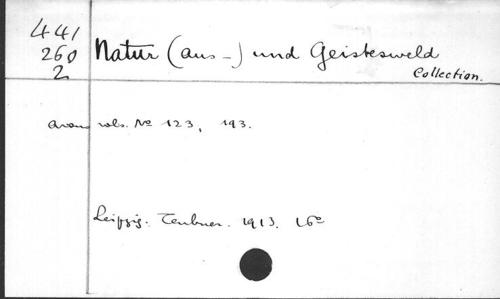 441
260
2
Natur (aus -) und Geistesweld
Collection.
vols. No 123, 193.
Leipzig. Teubner. 1913. 16°